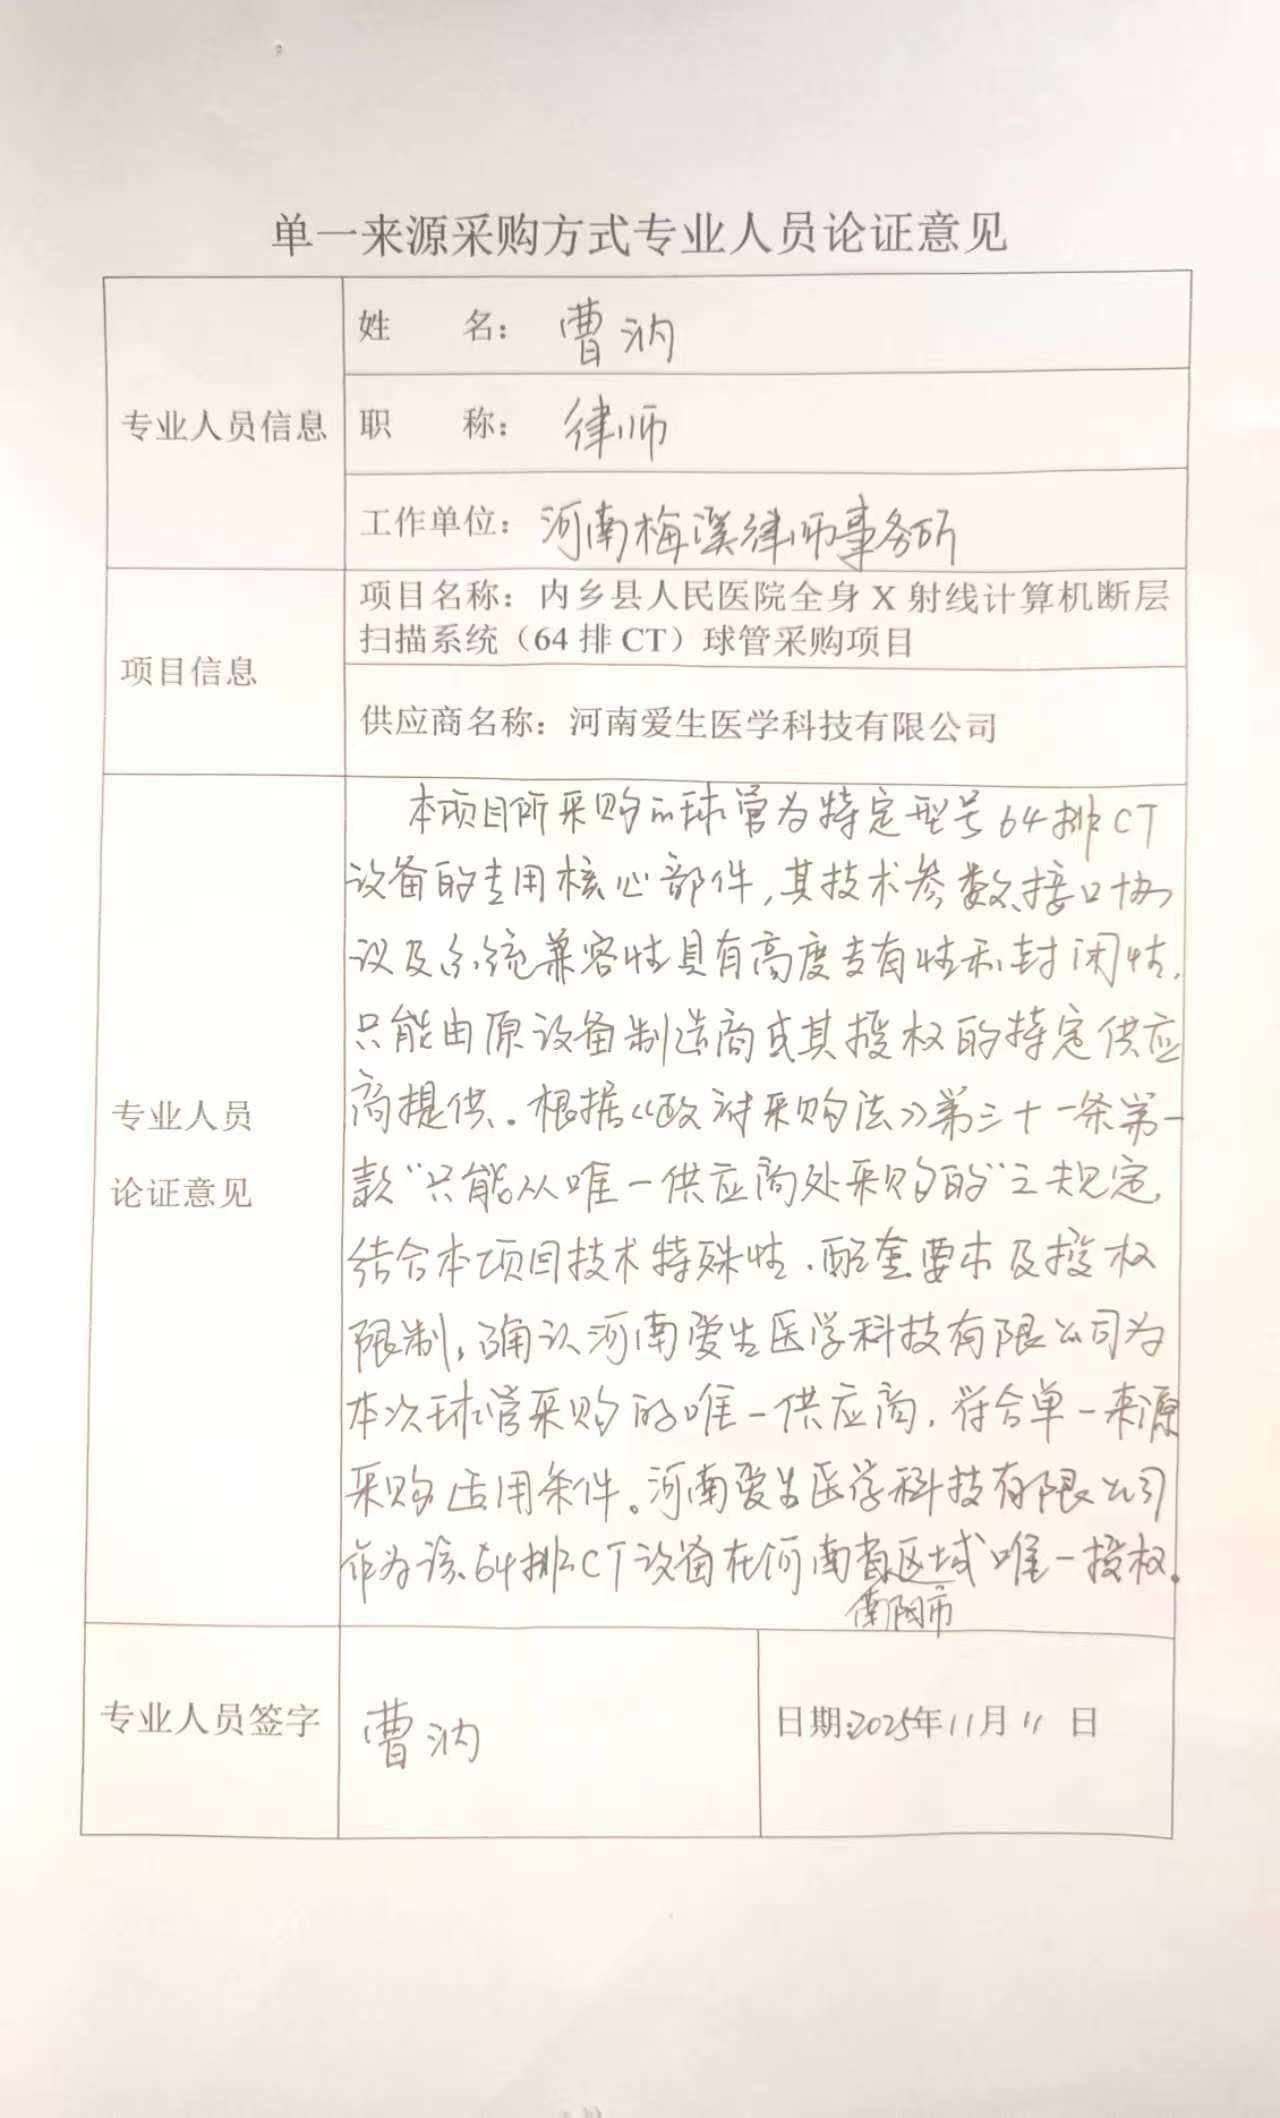 单一来源采购方式专业人员论证意见
专业人员信息
姓 名： 曹汭
职 称： 律师
工作单位：河南梅溪律师事务所
项目信息
项目名称：内乡县人民医院全身 X 射线计算机断层
扫描系统（64 排 CT）球管采购项目
供应商名称：河南爱生医学科技有限公司
专业人员
论证意见
本项目所采购的球管为特定型号64排CT
设备的专用核心部件,其技术参数、接口协
议及系统兼容性具有高度专有性和封闭性,
只能由原设备制造商或其授权的特定供应
商提供。根据《政府采购法》第三十一条第一
款“只能从唯一供应商处采购的”之规定,
结合本项目技术特殊性、配套要求及授权
限制,确认河南爱生医学科技有限公司为
本次球管采购的唯一供应商,符合单一来源
采购适用条件。河南爱生医学科技有限公司
作为该64排CT设备在河南省区域唯一授权。
南阳市
专业人员签字
曹汭
日期:2025年11月11日